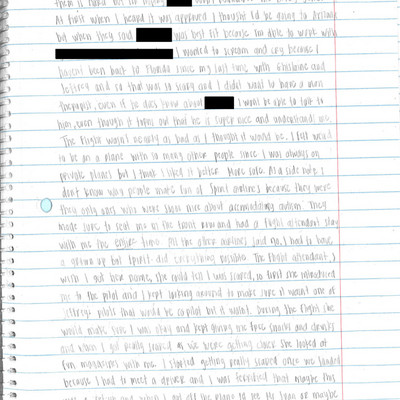 At first when I heard it was approved I thought I'd be going to Arizona
but when they said was best fit because I'm able to work with
I wanted to scream and cry because I
haven't been back to Florida since my last time with Ghislaine and
Jeffrey and so that was scary and I didn't want to have a man
therapist, even if he does know about I wont be able to talk to
him, even though it turns out that he is super nice and understands me.
The flight wasn't nearly as bad as I thought it would be. I felt weird
to be on a plane with so many other people since I was always on
private planes but I think I liked it better. More safe. As a side note, I
don't know why people make fun of Spirit airlines because they were
the only ones who were super nice about accommodating autism. They
made sure to seat me in the front row and had a flight attendant stay
with me the entire time. All the other airlines said no, I had to have
a grown up but Spirit did everything possible. The flight attendant, I
wish I got her name, she could tell I was scared, so first she introduced
me to the pilot and I kept looking around to make sure it wasnt one of
Jeffreys pilots that would be copilot but it wasnt. During the flight she
would make sure I was okay and kept giving me free snacks and drinks
and when I got really scared as we were getting close she looked at
fun magazines with me. I started getting really scared once we landed
because I had to meet a driver and I was terrified that maybe this
was a and when I got off the plane to see or maybe